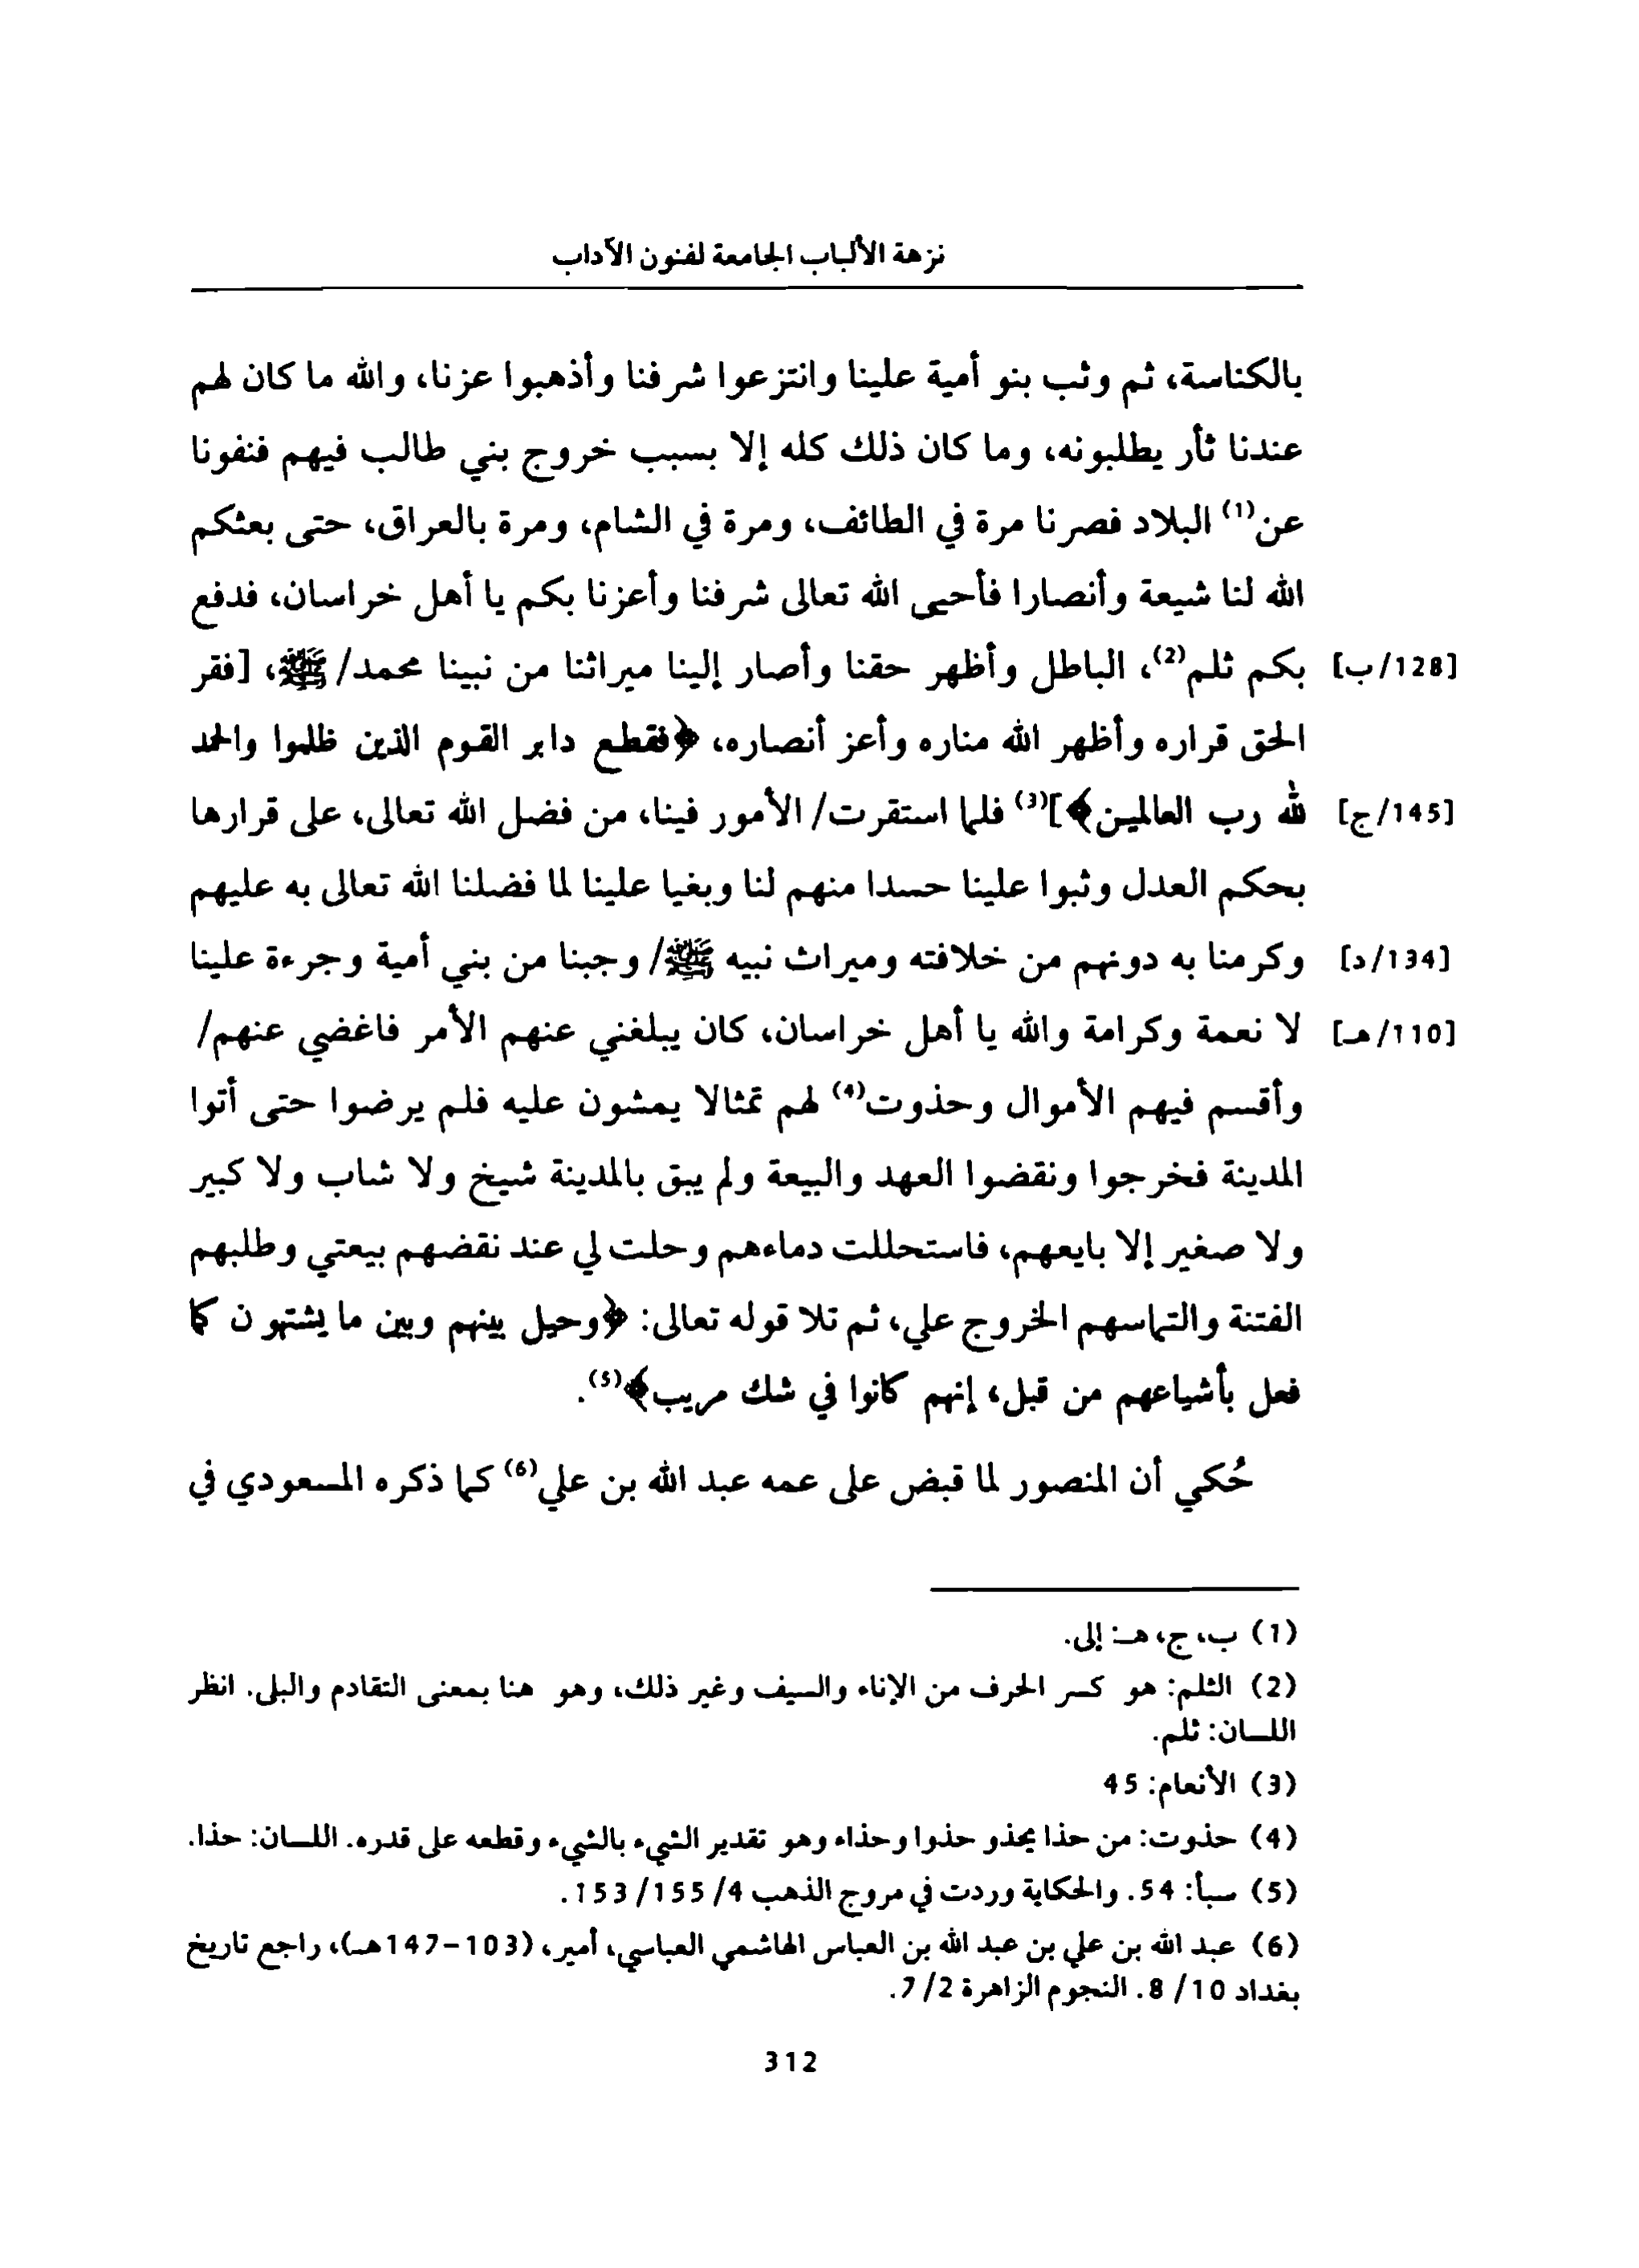 نزهة الألباب الجامعة لفنون الآداب
بالكناسة، ثم وثب بنو أمية علينا وانتزعوا شرفنا وأذهبوا عزنا، والله ما كان لهم
عندنا ثأر يطلبونه، وما كان ذلك كله إلا بسبب خروج بني طالب فيهم فنفونا
عن(1) البلاد فصرنا مرة في الطائف، ومرة في الشام، ومرة بالعراق، حتى بعثكم
الله لنا شيعة وأنصارا فأحيى الله تعالى شرفنا وأعزنا بكم يا أهل خراسان، فدفع
[128/ب] بكم ثلم(2)، الباطل وأظهر حقنا وأصار إلينا ميراثنا من نبينا محمد/ ﷺ، [فقر
الحق قراره وأظهر الله مناره وأعز أنصاره، ﴿فقطع دابر القوم الذين ظلموا والحمد
[145/ج] لله رب العالمين﴾](3) فلما استقرت/ الأمور فينا، من فضل الله تعالى، على قرارها
بحكم العدل وثبوا علينا حسدا منهم لنا وبغيا علينا لما فضلنا الله تعالى به عليهم
[134/د] وكرمنا به دونهم من خلافته وميراث نبيه ﷺ/ وجبنا من بني أمية وجرءة علينا
[110/هـ] لا نعمة وكرامة والله يا أهل خراسان، كان يبلغني عنهم الأمر فاغضي عنهم/
وأقسم فيهم الأموال وحذوت(4) لهم تمثالا يمشون عليه فلم يرضوا حتى أتوا
المدينة فخرجوا ونقضوا العهد والبيعة ولم يبق بالمدينة شيخ ولا شاب ولا كبير
ولا صغير إلا بايعهم، فاستحللت دماءهم وحلت لي عند نقضهم بيعتي وطلبهم
الفتنة والتماسهم الخروج علي، ثم تلا قوله تعالى: ﴿وحيل بينهم وبين ما يشتهون كما
فعل بأشياعهم من قبل، إنهم كانوا في شك مريب﴾(5).
حُكي أن المنصور لما قبض على عمه عبد الله بن علي(6) كما ذكره المسعودي في
(1) ب، ج، هـ: إلى.
(2) الثلم: هو كسر الحرف من الإناء والسيف وغير ذلك، وهو هنا بمعنى التقادم والبلى. انظر
اللسان: ثلم.
(3) الأنعام: 45
(4) حذوت: من حذا يحذو حذوا وحذاء وهو تقدير الشيء بالشيء وقطعه على قدره. اللسان: حذا.
(5) سبأ: 54. والحكاية وردت في مروج الذهب 4/ 155/ 153.
(6) عبد الله بن علي بن عبد الله بن العباس الهاشمي العباسي، أمير، (103-147هـ)، راجع تاريخ
بغداد 10/ 8. النجوم الزاهرة 2/ 7.
312